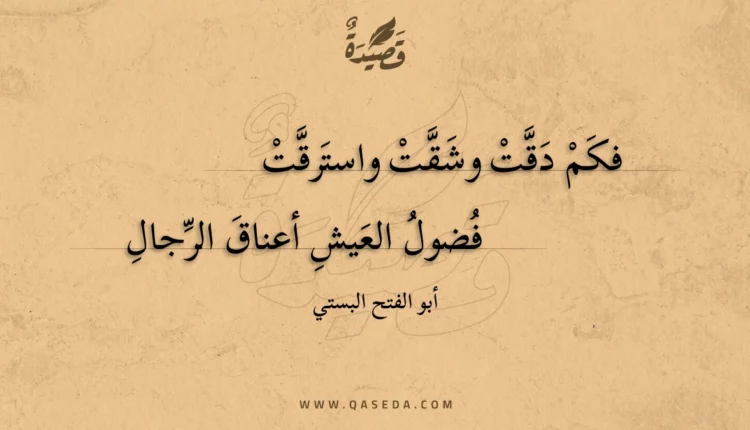 قَصِيْدَةٌ
فكَمْ دَقَّتْ وشَقَّتْ واستَرقَّتْ
فُضولُ العَيشِ أعناقَ الرِّجالِ
أبو الفتح البستي
WWW.QASEDA.COM